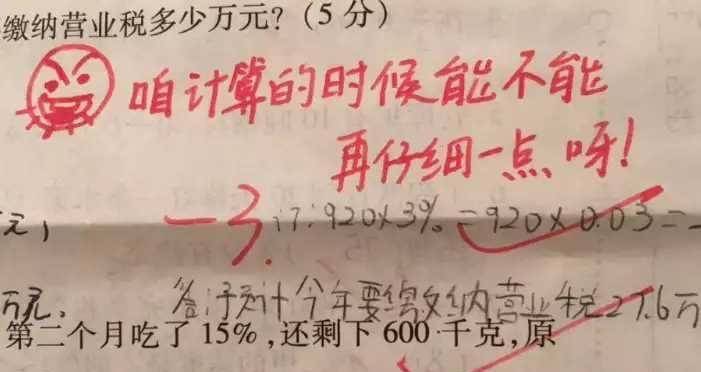 缴纳营业税多少万元？（5 分）
咱计算的时候能不能
再仔细一点呀！
元，
-3
920×3% = 920×0.03 =
万元。
答：预计今年要缴纳营业税27.6万
第二个月吃了 15%，还剩下 600 千克，原